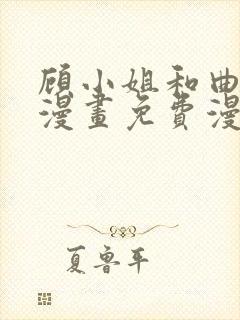 顾小姐和曲
漫畫免費漫
夏鲁平